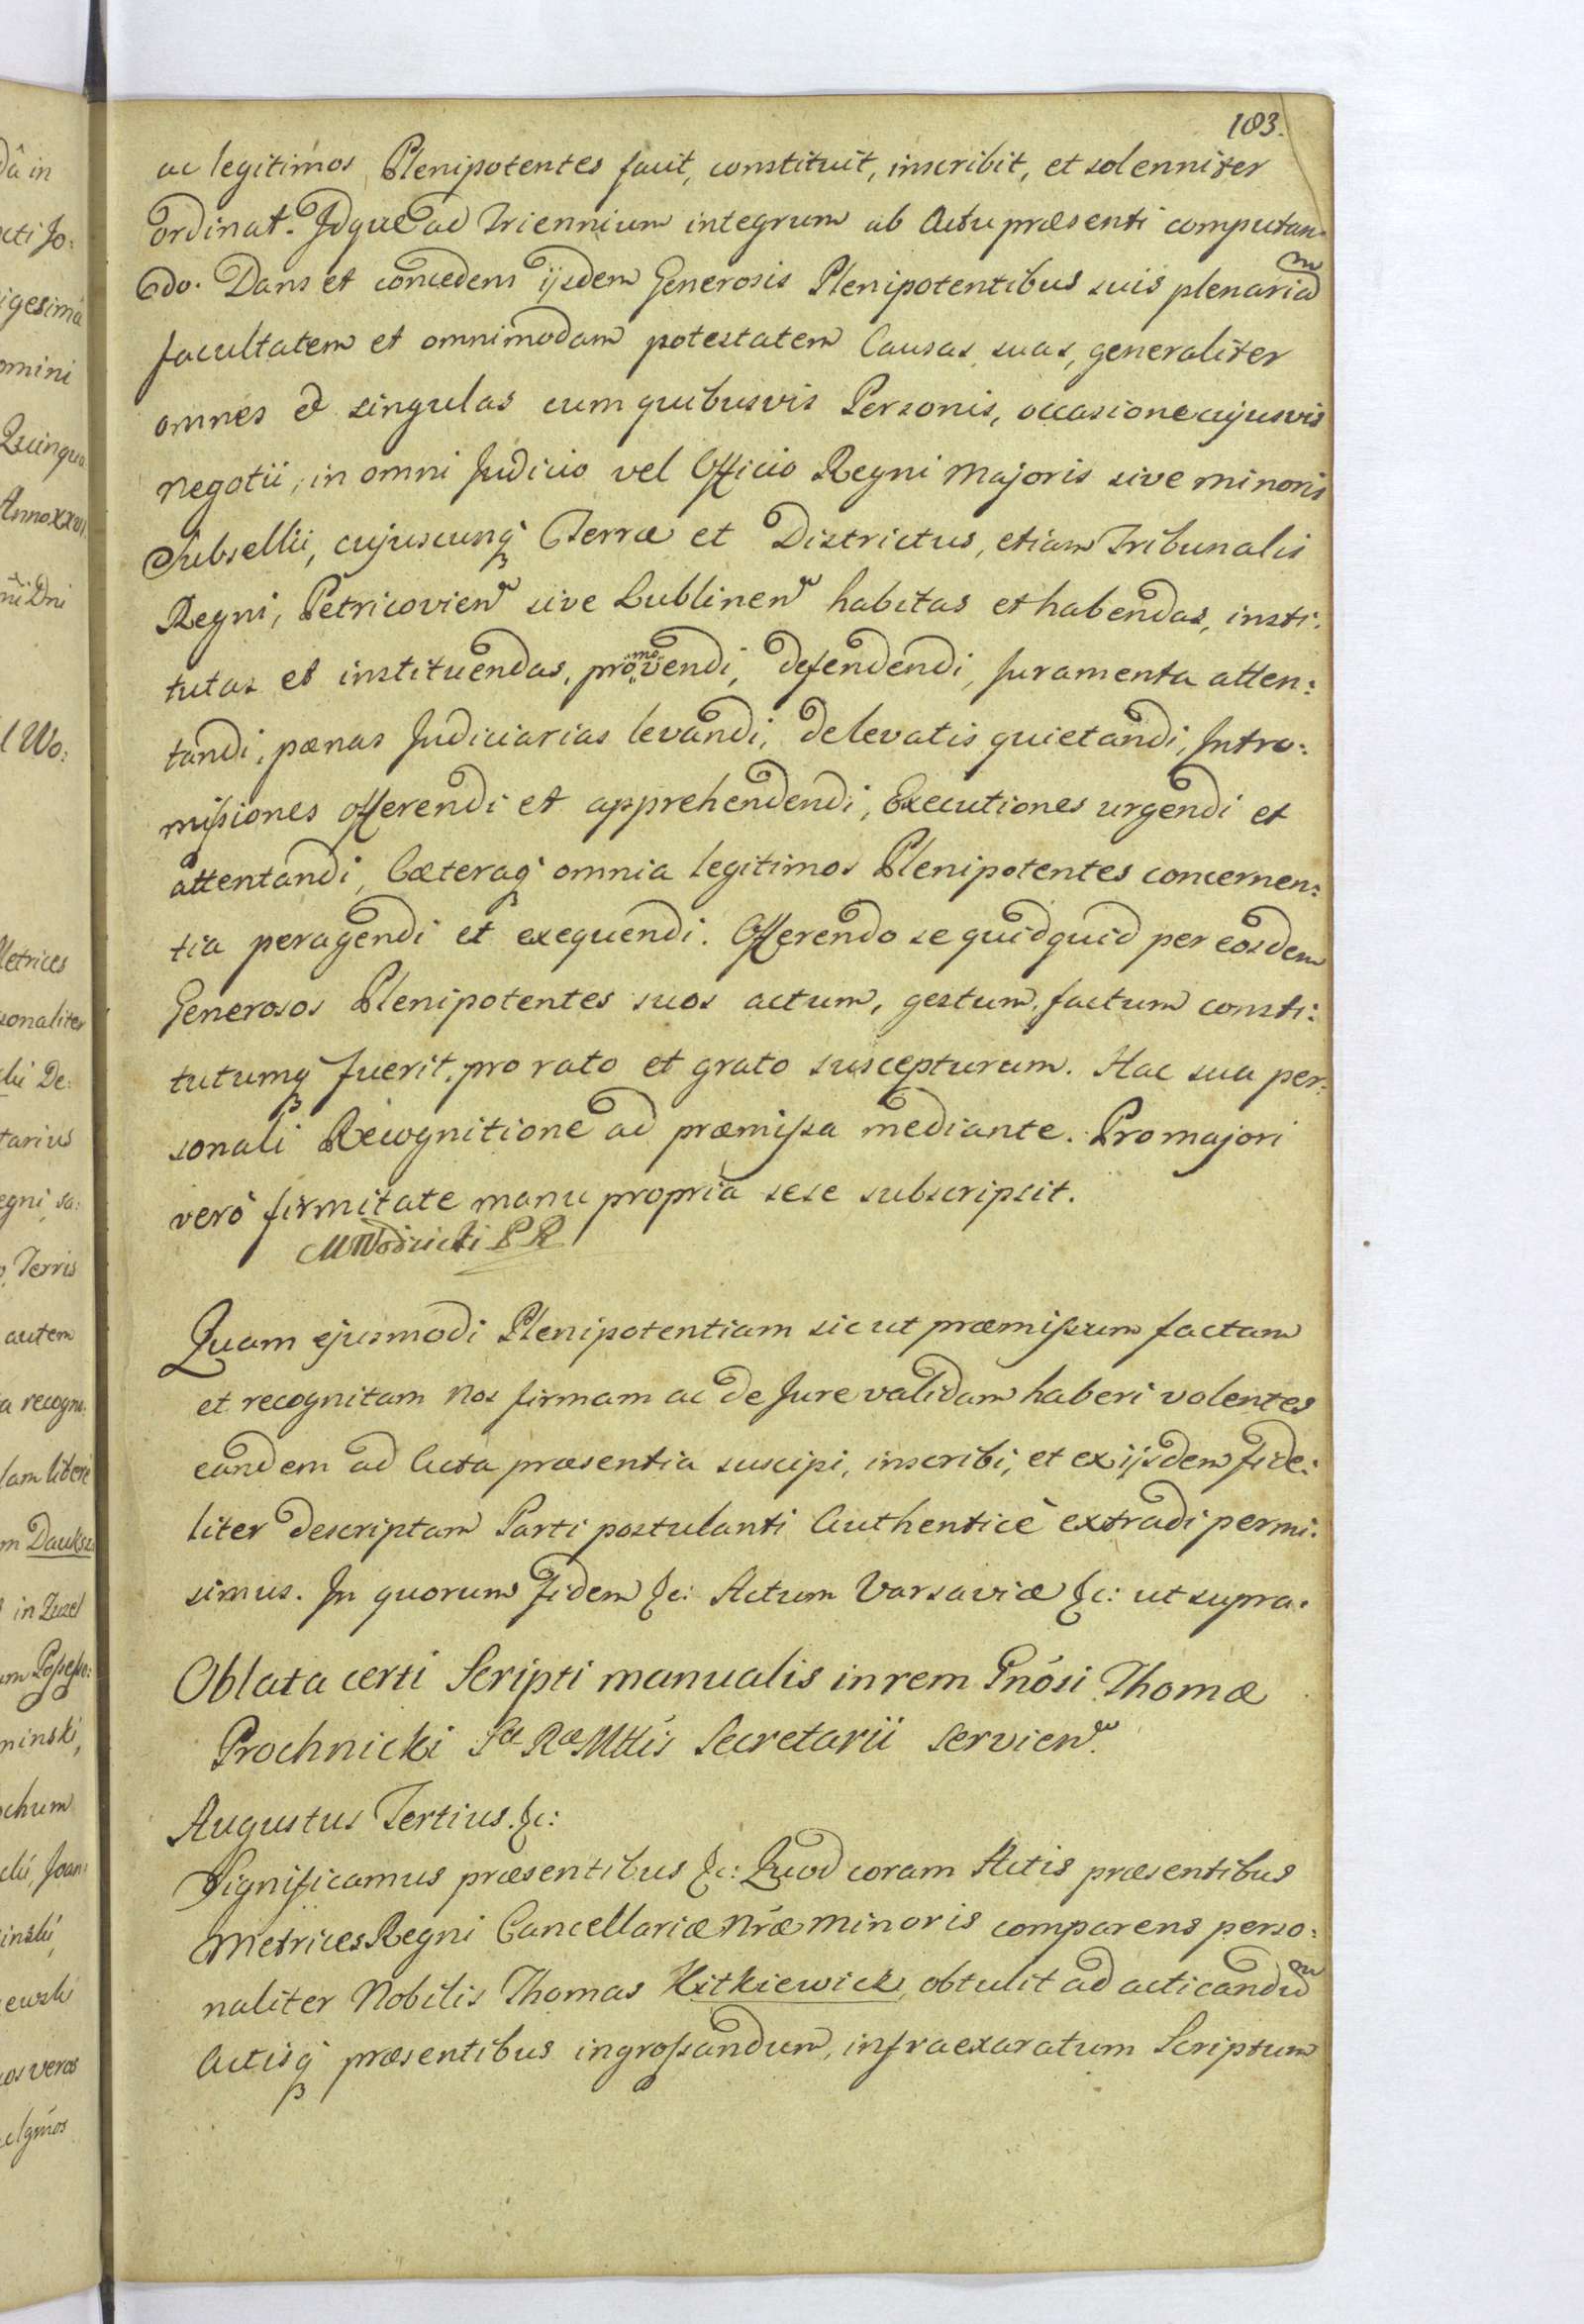 183.
ac legitimos Plenipotentes facit, constituit, inscribit, et solenniter
ordinat. Idque ad Triennium integrum ab Actu præsenti computan-
do. Dans et concedens ijsdem Generosis Plenipotentibus suis plenariam
facultatem et omnimodam potestatem Causas suas, generaliter
omnes et singulas cum quibusvis Personis, occasione cujusvis
negotii, in omni Judicio vel Officio Regni majoris sive minoris
Subsellii, cujuscunq Terræ et Districtus, etiam Tribunalis
Regni, Petricovien sive Lublinen habitas et habendas, insti:
tutas et instituendas, promovendi, defendendi, Juramenta atten:
tandi, pænas Judiciarias levandi, de levatis quietandi, Intro:
missiones offerendi et apprehendendi, Executiones urgendi et
attentandi, Cæteraq omnia legitimos Plenipotentes concernen:
tia peragendi et exequendi. Offerendo se quidquid per eosdem
Generosos Plenipotentes suos actum, gestum, factum consti:
tutumq fuerit, pro rato et grato suscepturum. Hac sua per:
sonali Recognitione ad præmissa mediante. Pro majori
verò firmitate manu propria sese subscripsit.
MWodzicki P R
Quam ejusmodi Plenipotentiam sicut præmissum factam
et recognitam Nos firmam ac de Jure validam haberi volentes
eandem ad Acta præsentia suscipi, inscribi, et ex ijsdem fide:
liter descriptam Parti postulanti Authenticè extradi permi:
simus. In quorum Fidem &c: Actum Varsaviæ &c: ut supra.
Oblata certi Scripti manualis in rem Gnósi Thomæ
Prochnicki Sæ Ræ Mttis Secretarii servien.
Augustus Tertius. &c:
Significamus præsentibus &c: Quod coram Actis præsentibus
Metrices Regni Cancellariæ Nræ minoris comparens perso:
naliter Nobilis Thomas Kitkiewicz, obtulit ad acticandum
Actisq præsentibus ingrossandum, infraexaratum Scriptum